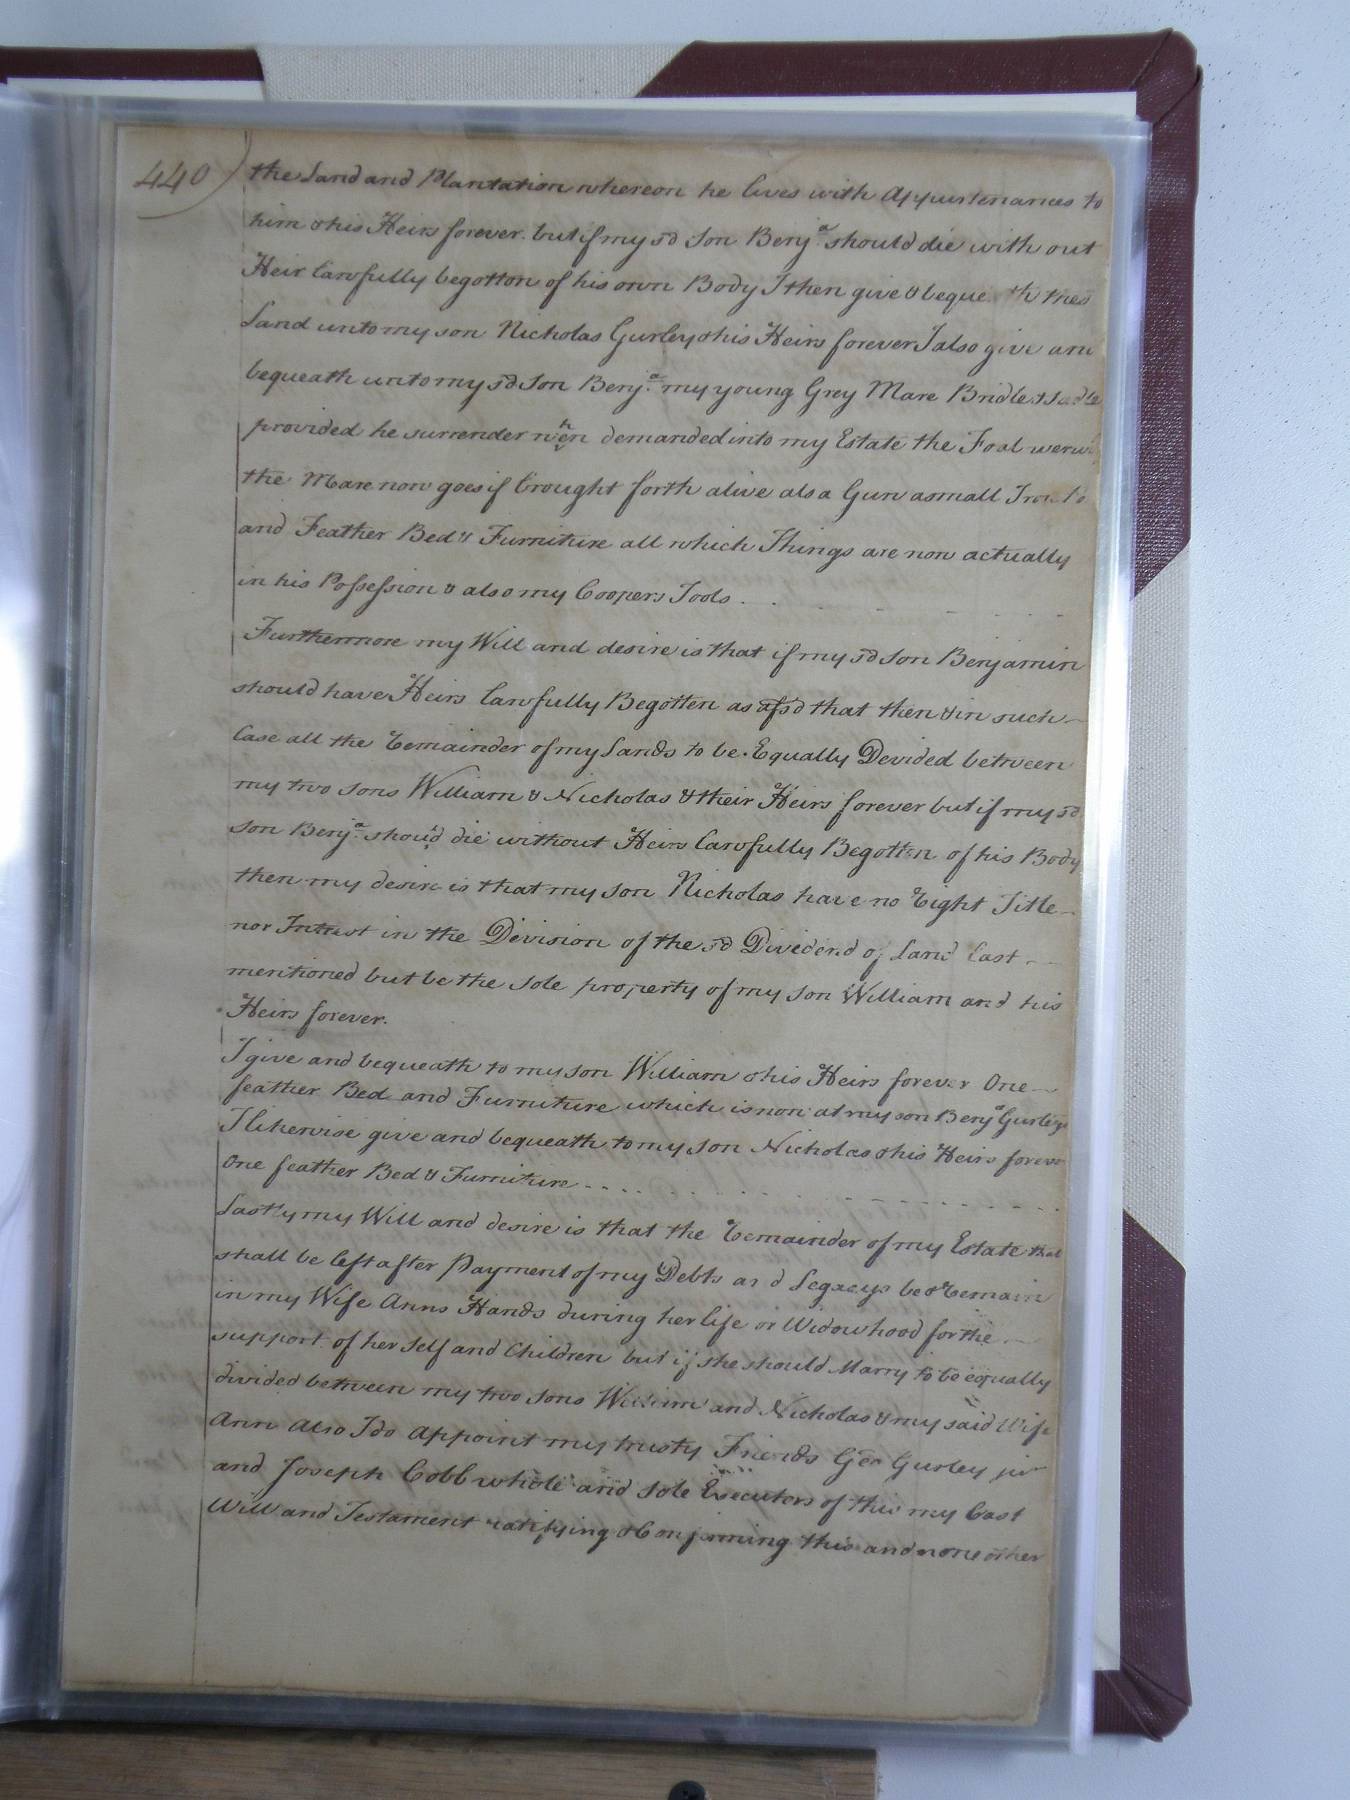 440)
the Land and Plantation whereon he lives with Appurtenances to
him & his Heirs forever. but if my sd Son Benja. should die with out
Heir lawfully begotton of his own Body I then give & beque th
Land unto my son Nicholas Gurley & his Heirs forever I also give an
bequeath unto my sd Son Benja. my young Grey Mare Bridle & Sadle
provided he surrender when demanded into my Estate the Foal
the Mare now goes if brought forth alive also a Gun a small Iron Po
and Feather Bed & Furniture all which Things are now actually
in his Possession & also my Coopers Tools . .
Furthermore my Will and desire is that if my sd Son Benjamin
should have Heirs lawfully Begotten as afsd that then & in such
Case all the Remainder of my Lands to be Equally Devided between
my two sons William & Nicholas & their Heirs forever but if my sd
son Benja. shou'd die without Heirs lawfully Begotten of his Body
then my desire is that my son Nicholas have no Right Title
nor Intrest in the Division of the sd Dividend of Land last
mentioned but be the sole property of my son William and his
Heirs forever.
I give and bequeath to my son William & his Heirs forever One
feather Bed and Furniture which is now at my son Benja Gurleys
I likewise give and bequeath to my son Nicholas & his Heirs forever
One feather Bed & Furniture . . . .
Lastly my Will and desire is that the Remainder of my Estate that
shall be left after Payment of my Debts and Legacys be & Remain
in my Wife Anns Hands during her life or Widowhood for the
support of her Self and Children but if she should Marry to be equally
divided between my two sons William and Nicholas & my said Wife
Ann Also I do Appoint my trusty Friends Geo Gurley junr
and Joseph Cobb whole and sole Executors of this my last
Will and Testament ratifying & Confirming this and none other